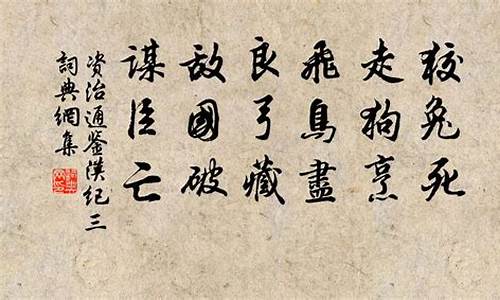 狡兔死
走狗烹
飛鳥盡
良弓藏
敌國破
謀臣亡
资治通鉴漢纪三
詞典網集